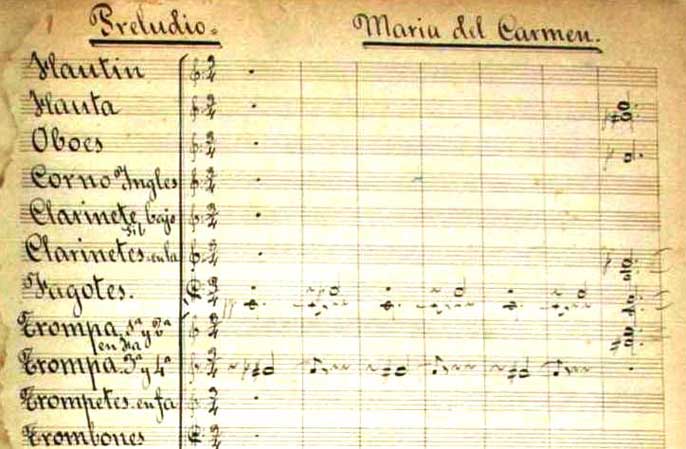 Preludio. Maria del Carmen.
Flautin
Flauta
Oboes
Corno Ingles
Clarinete bajo
Sib
Clarinetes en la
Fagotes.
Trompa 1ª y 2ª
en Fa
Trompa 3ª y 4ª
Trompetes en fa
Trombones